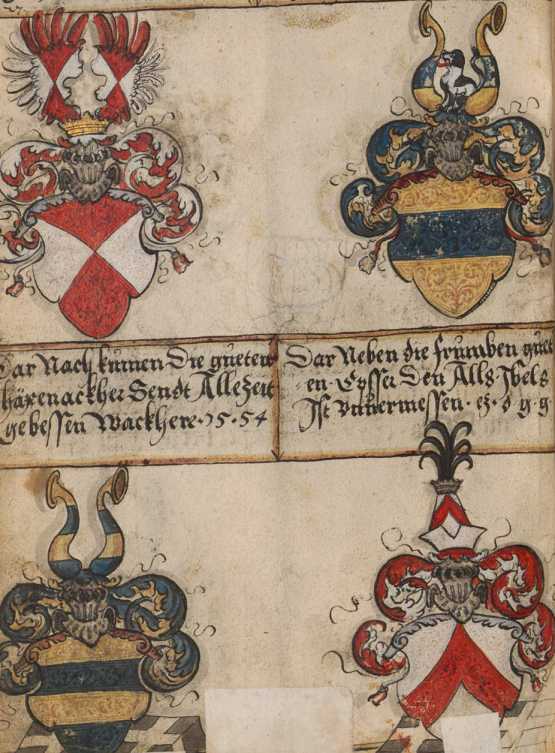 Dar Nach kumen Die gueten
häxenackher Sendt Allezeit
gebessen Wackhere · 15 · 54
Dar Neben die frumben guet
en Den Alls Ibels
Ist vnuermessen